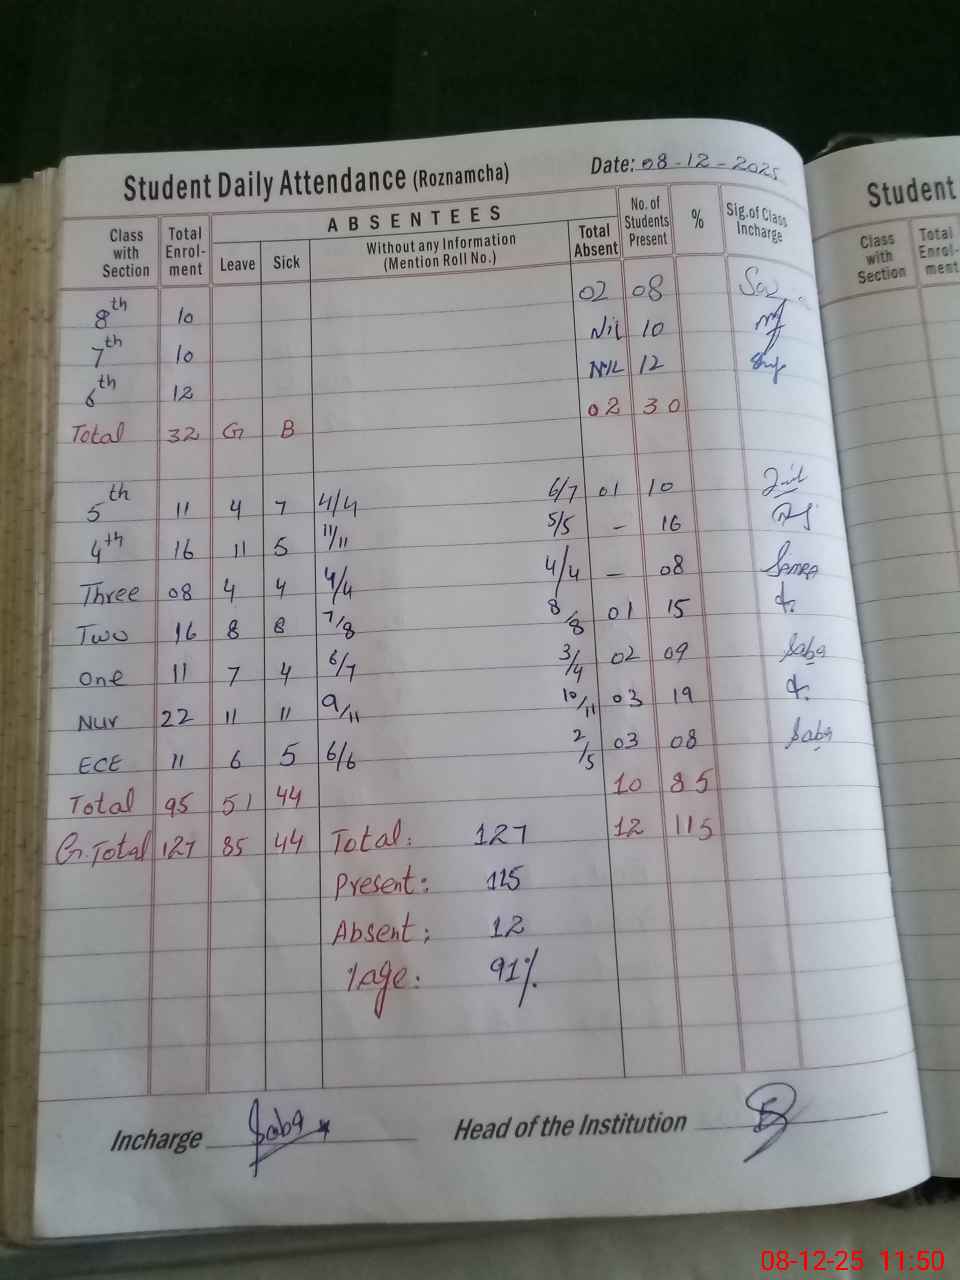 Student Daily Attendance (Roznamcha) Date: 08-12-2025
Class with Section Total Enrol-ment ABSENTEES Leave Sick Without any Information (Mention Roll No.) Total Absent No. of Students Present % Sig. of Class Incharge
8th 10 02 08
7th 10 Nil 10
6th 12 NIL 12
Total 32 G B 02 30
5th 11 4 7 4/4 6/7 01 10
4th 16 11 5 11/11 5/5 - 16
Three 08 4 4 4/4 4/4 - 08 SAMRA
Two 16 8 8 7/8 8/8 01 15
One 11 7 4 6/7 3/4 02 09 Saba
Nur 22 11 11 9/11 10/11 03 19
ECE 11 6 5 6/6 2/5 03 08 Saba
Total 95 51 44 10 85
G.Total 127 85 44 Total: 127 12 115
Present: 115
Absent: 12
%age: 91%
Incharge Saba Head of the Institution
Student
Class with Section Total Enrol-ment
08-12-25 11:50